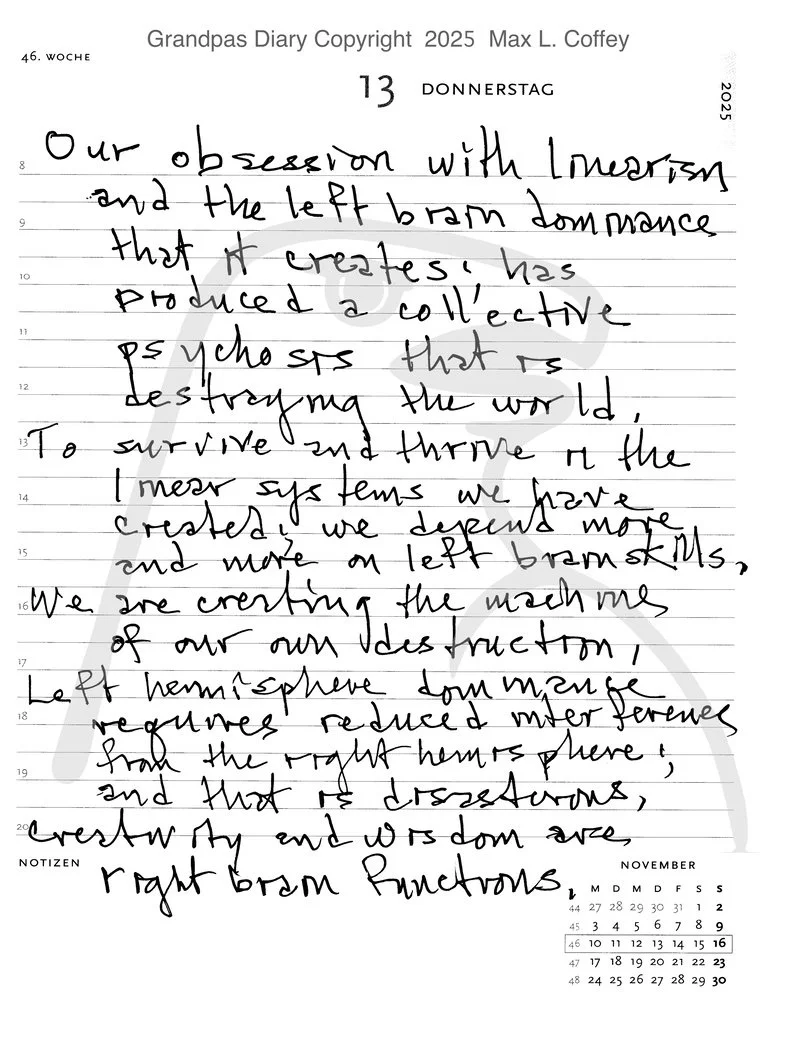 Grandpas Diary Copyright 2025 Max L. Coffey
46. WOCHE
13 DONNERSTAG
2025
Our obsession with linearism
8
and the left brain dominance
9
that it creates, has
10
produced a collective
11
psychosis that is
12
destroying the world.
13 To survive and thrive in the
linear systems we have
14
created, we depend more
15
and more on left brain skills,
16 We are creating the machines
of our own destruction,
17
Left hemisphere dominance
18
requires reduced interference
from the right hemisphere,
19
and that is disasterous,
20 creativity and wisdom are
NOTIZEN
right brain functions,
NOVEMBER
M D M D F S S
44 27 28 29 30 31 1 2
45 3 4 5 6 7 8 9
46 10 11 12 13 14 15 16
47 17 18 19 20 21 22 23
48 24 25 26 27 28 29 30